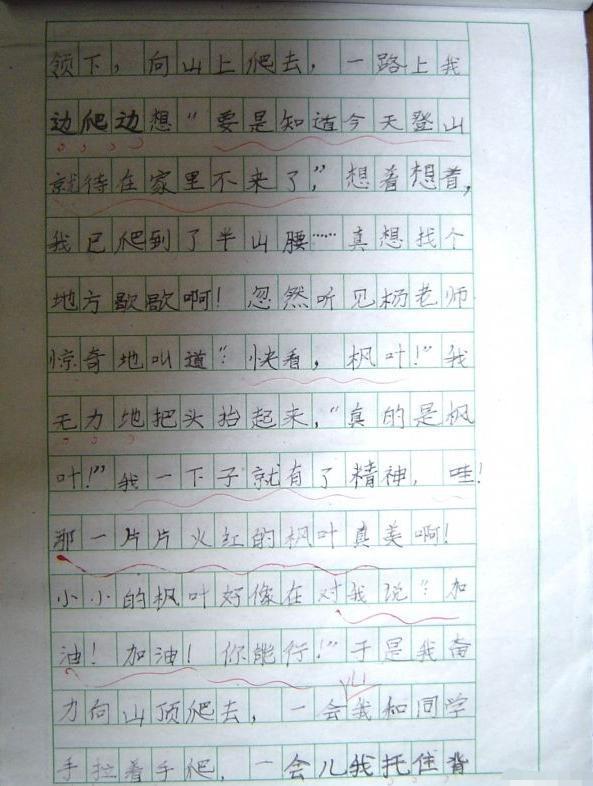 领下，向山上爬去，一路上我
边爬边想“要是知道今天登山
就待在家里不来了”，想着想着，
我已爬到了半山腰……真想找个
地方歇歇啊！忽然听见杨老师
惊奇地叫道：“快看，枫叶！”我
无力地把头抬起来，“真的是枫
叶！”我一下子就有了精神，哇！
那一片片火红的枫叶真美啊！
小小的枫叶好像在对我说：“加
油！加油！你能行！”于是我奋
力向山顶爬去，一会儿我和同学
手拉着手爬，一会儿我托住背